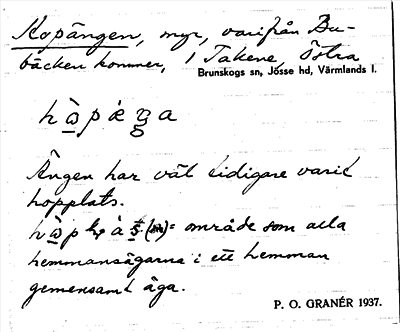 Hopängen, myr, varifrån Bu-
bäcken kommer, i Takene, Östra
Brunskogs sn, Jösse hd, Värmlands l.
Ängen har väl tidigare varit
hopplats.
= område som alla
hemmansägarna i ett hemman
gemensamt äga.
P. O. GRANÉR 1937.